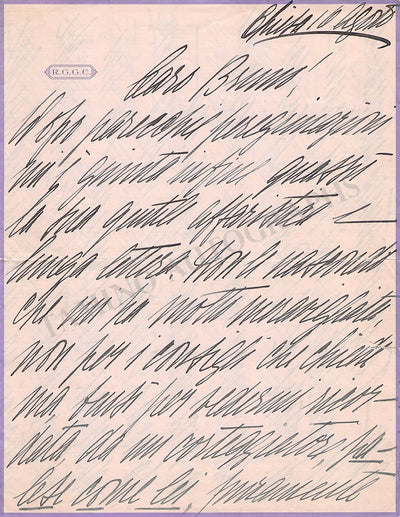 Chivi 10 Agosto
R.G.G.C.
Caro Bruni!
Dopo parecchie peregrinazioni
mi è giunta infine quassù
la sua gentile affettuosa e
lunga lettera. Non le nascondo
che mi ha molto meravigliata
non per i consigli che chiede-
ma, bensì per vedermi ricor-
data da un corteggiatore, pa-
lese come lei, puramente
TAMINO AUTOGRAPHS